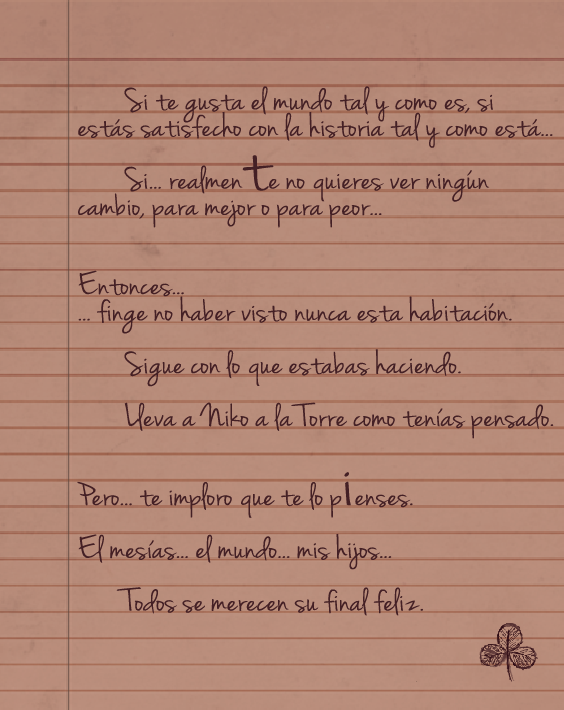 Si te gusta el mundo tal y como es, si
estás satisfecho con la historia tal y como está...
Si... realmente no quieres ver ningún
cambio, para mejor o para peor...
Entonces...
... finge no haber visto nunca esta habitación.
Sigue con lo que estabas haciendo.
Lleva a Niko a la Torre como tenías pensado.
Pero... te imploro que te lo pienses.
El mesías... el mundo... mis hijos...
Todos se merecen su final feliz.